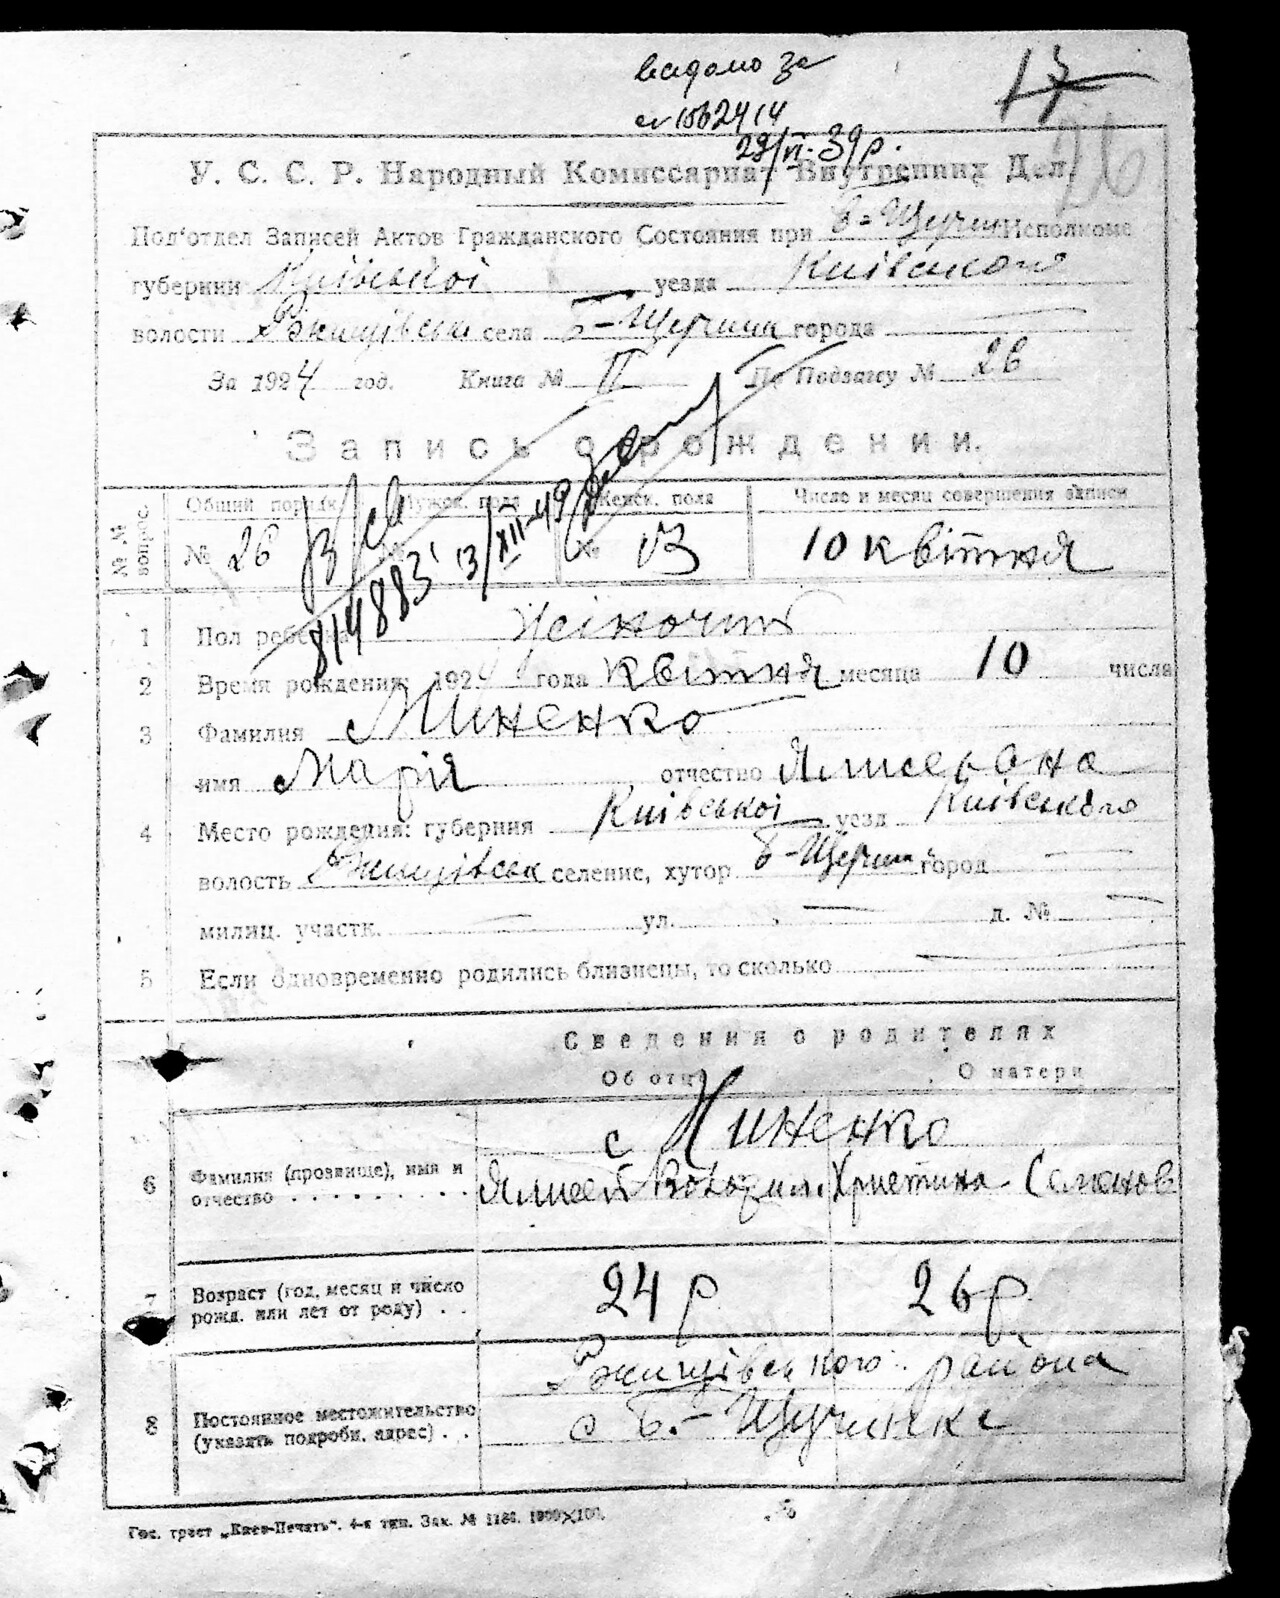 видано за
17
28/VI-39р.
26
У. С. С. Р. Народный Комиссариат Внутренних Дел
Под'отдел Записей Актов Гражданского Состояния при Б-Щучин Исполкоме
губернии Київської уезда Київського
волости Ржищівськ села Б-Щучинк города —
За 1924 год. Книга № II По Подзагсу № 26
Запись о рождении.
№№ вопрос. Общий порядк. Мужск. пола Женск. пола Число и месяц совершения записи
№ 26 № № 13 10 квітня
814883 13/XII-49
1 Пол ребенка Жіночий
2 Время рождения: 1924 года квітня месяца 10 числа
3 Фамилия Миненко
имя Марія отчество
4 Место рождения: губерния Київської уезд Київського
волость Ржищівськ селение, хутор Б-Щучин город —
милиц. участк. — ул. — д. № —
5 Если одновременно родились близнецы, то сколько —
Сведения о родителях
Об отце О матери
Миненко
6 Фамилия (прозвище), имя и отчество Христина Семенов
7 Возраст (год, месяц и число рожд. или лет от роду) 24 р 26 р.
Ржищівського района
8 Постоянное местожительство (указать подробн. адрес) с Б.-Щучинке
Гос. трест „Киев-Печать“. 4-я тип. Зак. № 1186. 1000×100.